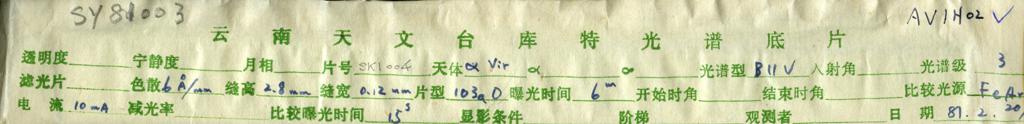 SY81003 AVIH02 V
云南天文台库特光谱底片
透明度 宁静度 月相 片号 SK1004 天体 α Vir α δ 光谱型 BIIV 入射角 光谱级 3
滤光片 色散 6 Å/mm 缝高 2.8 mm 缝宽 0.12 mm 片型 103aO 曝光时间 6m 开始时角 结束时角 比较光源 FeAr
电流 10mA 减光率 比较曝光时间 15s 显影条件 阶梯 观测者 日期 81.2.20